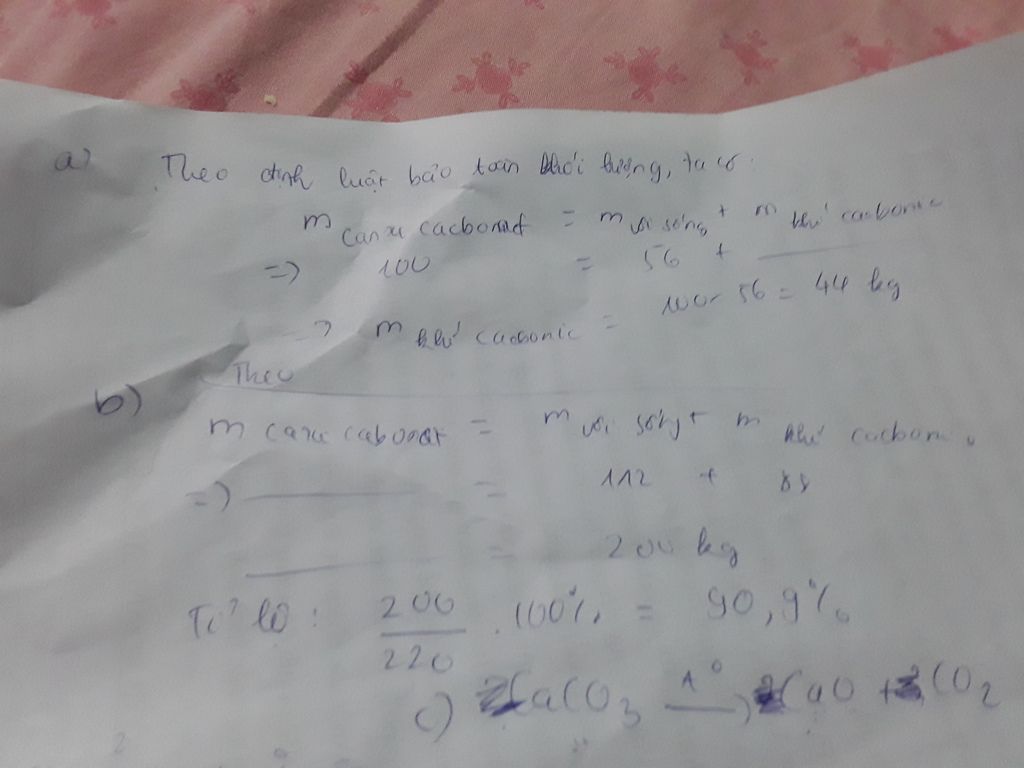 a) Theo định luật bảo toàn khối lượng, ta có
m canxi cacbonat = m vôi sống + m khí cacbonic
=> 100 = 56 +
=> m khí cacbonic = 100 - 56 = 44 kg
Theo
b) m canxi cabonat = m vôi sống + m khí cacbonic
=> = 112 + 88
= 200 kg
Tỉ lệ : 200 / 220 . 100% = 90,9%
c) CaCO3 t° → CaO + CO2